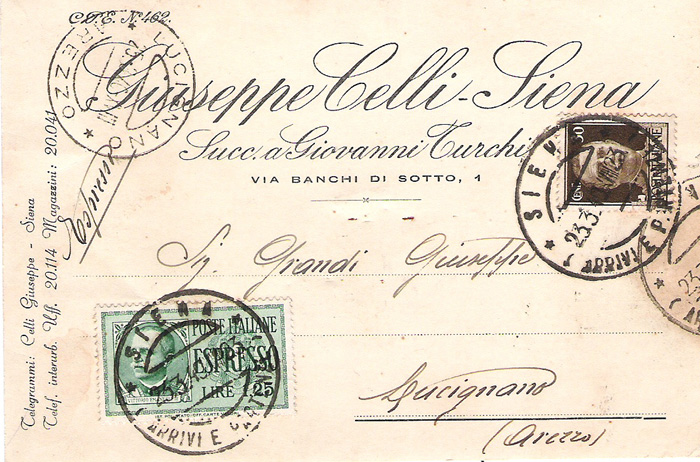 C.P.E. N. 462.
LUCIGNANO
AREZZO
Giuseppe Celli - Siena
Succ. a Giovanni Turchi
VIA BANCHI DI SOTTO, 1
Telegrammi: Celli Giuseppe - Siena
Telef. interurb. Uff. 20.114 Magazzini: 20.041
30
SIENA
23.3
ARRIVI E P.
Sig. Grandi Giuseppe
Lucignano
(Arezzo)
POSTE ITALIANE
ESPRESSO
LIRE 1,25
SIENA
23.3
ARRIVI E PAR